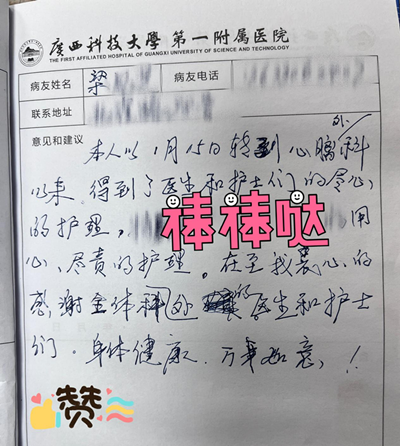 广西科技大学第一附属医院
THE FIRST AFFILIATED HOSPITAL OF GUANGXI UNIVERSITY OF SCIENCE AND TECHNOLOGY
病友姓名 梁 病友电话
联系地址
意见和建议
外
本人以1月15日转到心脑科
以来 得到了医生和护士们的尽心
的护理。 用
棒棒哒
心、尽责的护理。在至我衷心的
感谢全体科处 的医生和护士
们 身体健康 万事如意!
赞